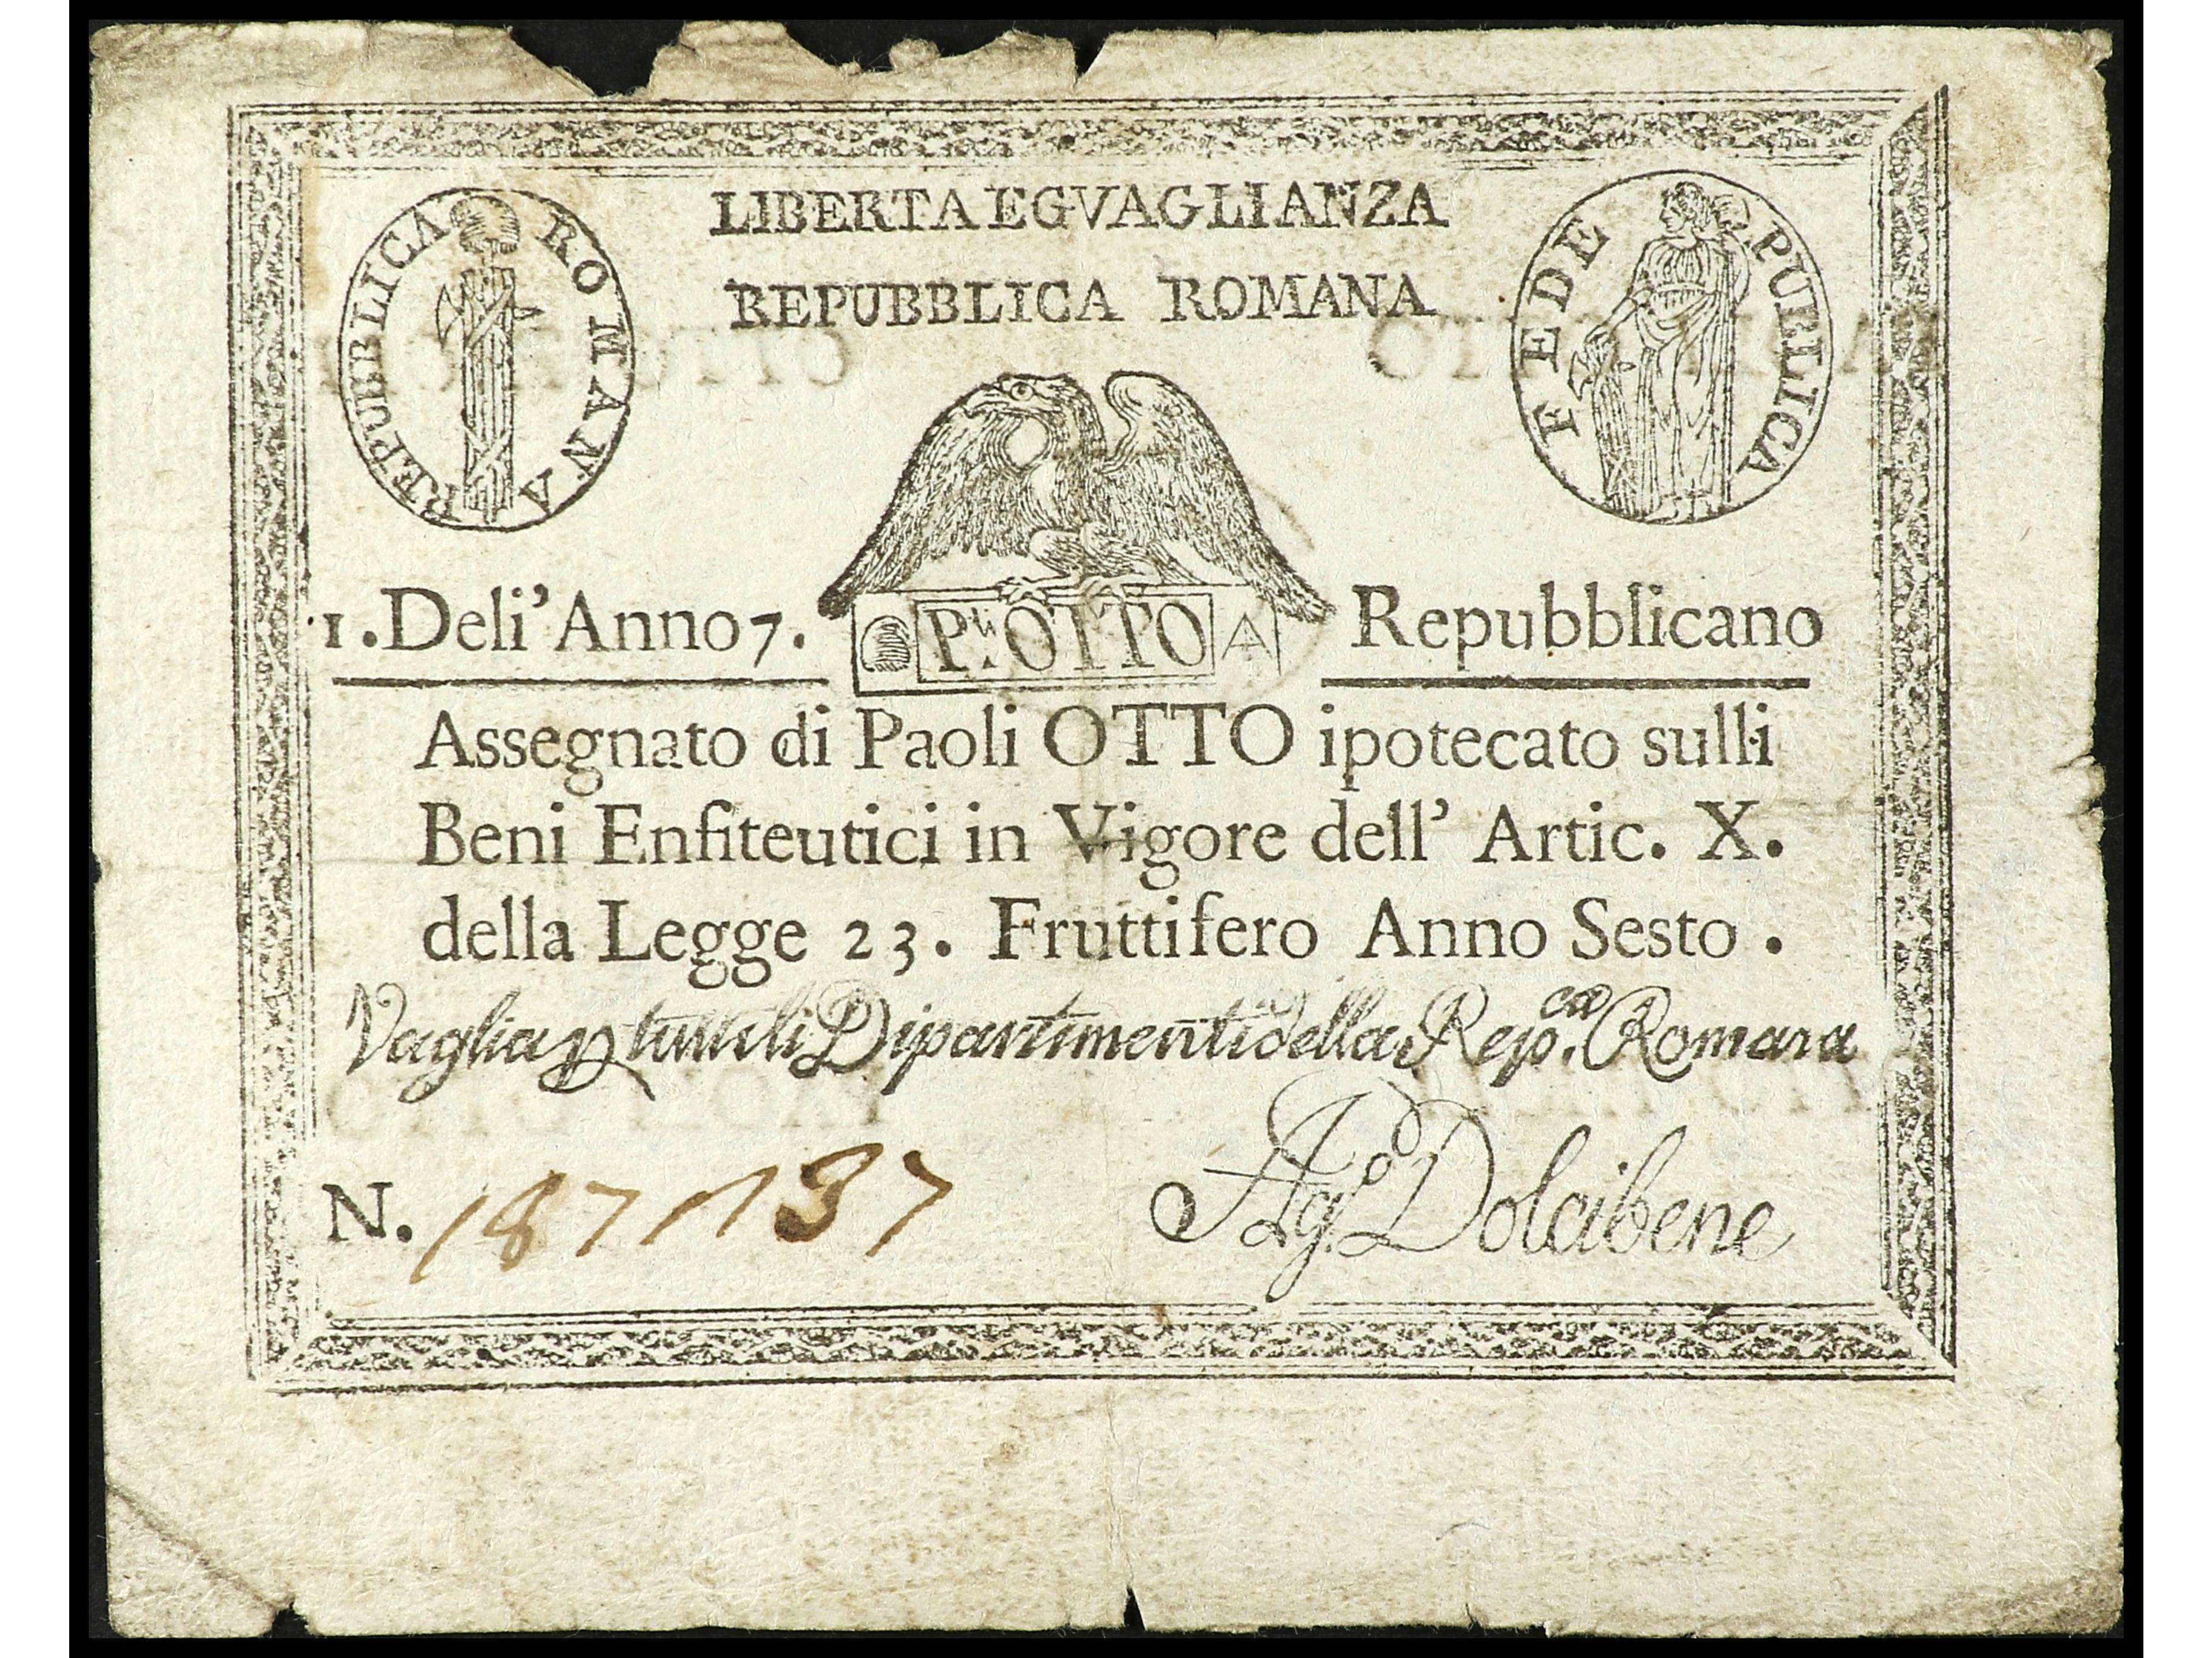 LIBERTA EGVAGLIANZA
REPUBBLICA ROMANA
REPUBBLICA ROMANA
FEDE PUBLICA
1. Dell' Anno 7.
P.li OTTO
Repubblicano
Assegnato di Paoli OTTO ipotecato sulli
Beni Enfiteutici in Vigore dell' Artic. X.
della Legge 23. Fruttifero Anno Sesto .
Vaglia p tutti li Dipartimenti della Rep.ca Romana
N.
Ag.o Dolcibene